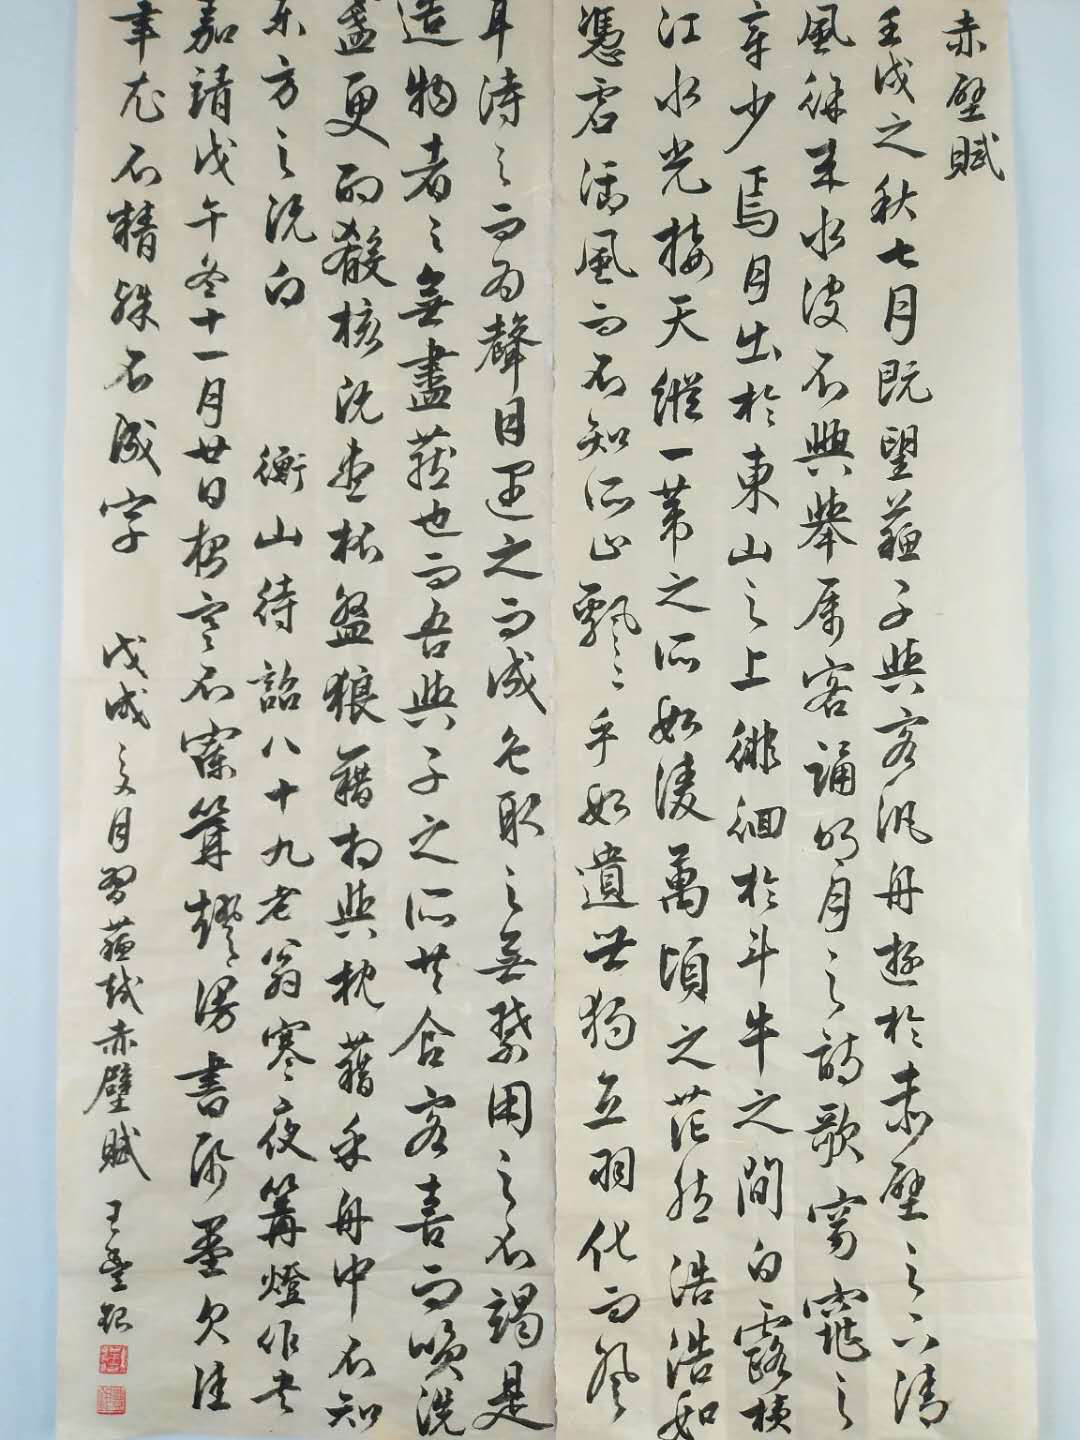 赤壁賦
壬戌之秋七月既望蘇子與客汎舟遊於赤壁之下清
風徐来水波不興舉属客誦明月之詩歌窈窕之
章少焉月出於東山之上徘徊於斗牛之間白露橫
江水光接天縱一葦之所如淩萬頃之茫然浩浩如
憑虚御風而不知所止飄〻乎如遺世獨立羽化而登
耳得之而为聲目遇之而成色取之無禁用之不竭是
造物者之無盡蔵也而吾與子之所共食客喜而咲洗
盞更酌殽核既盡杯盤狼藉相與枕藉乎舟中不知
东方之既白 衡山待詔八十九老翁寒夜篝燈作于
嘉靖戊午冬十一月廿日夜寒不寐篝燈漫書紙墨欠佳
筆尤不精殊不成字 戊戌之月習蘇軾赤壁賦